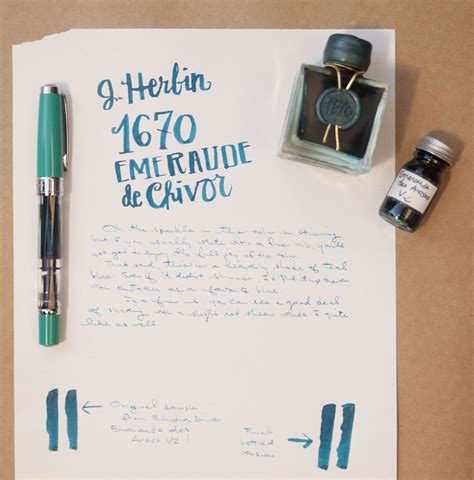 J. Herbin
1670
EMERAUDE
de Chivor
Oh the sparkle in this color is stunning
but if you usually write with a fine nib, you're
not going to enjoy the full joy of the color.
this is a heavenly shade of teal
blue. Even if it didn't shimmer I'd put it up there
with as a favorite blue.
In a fine nib, you can see a good deal
of shading with a slight red sheen which I quite
like as well.
Original sample
from
Emeraude des
Andes V2!
Final
bottled
version
Emeraude
des Andes
V2
1670